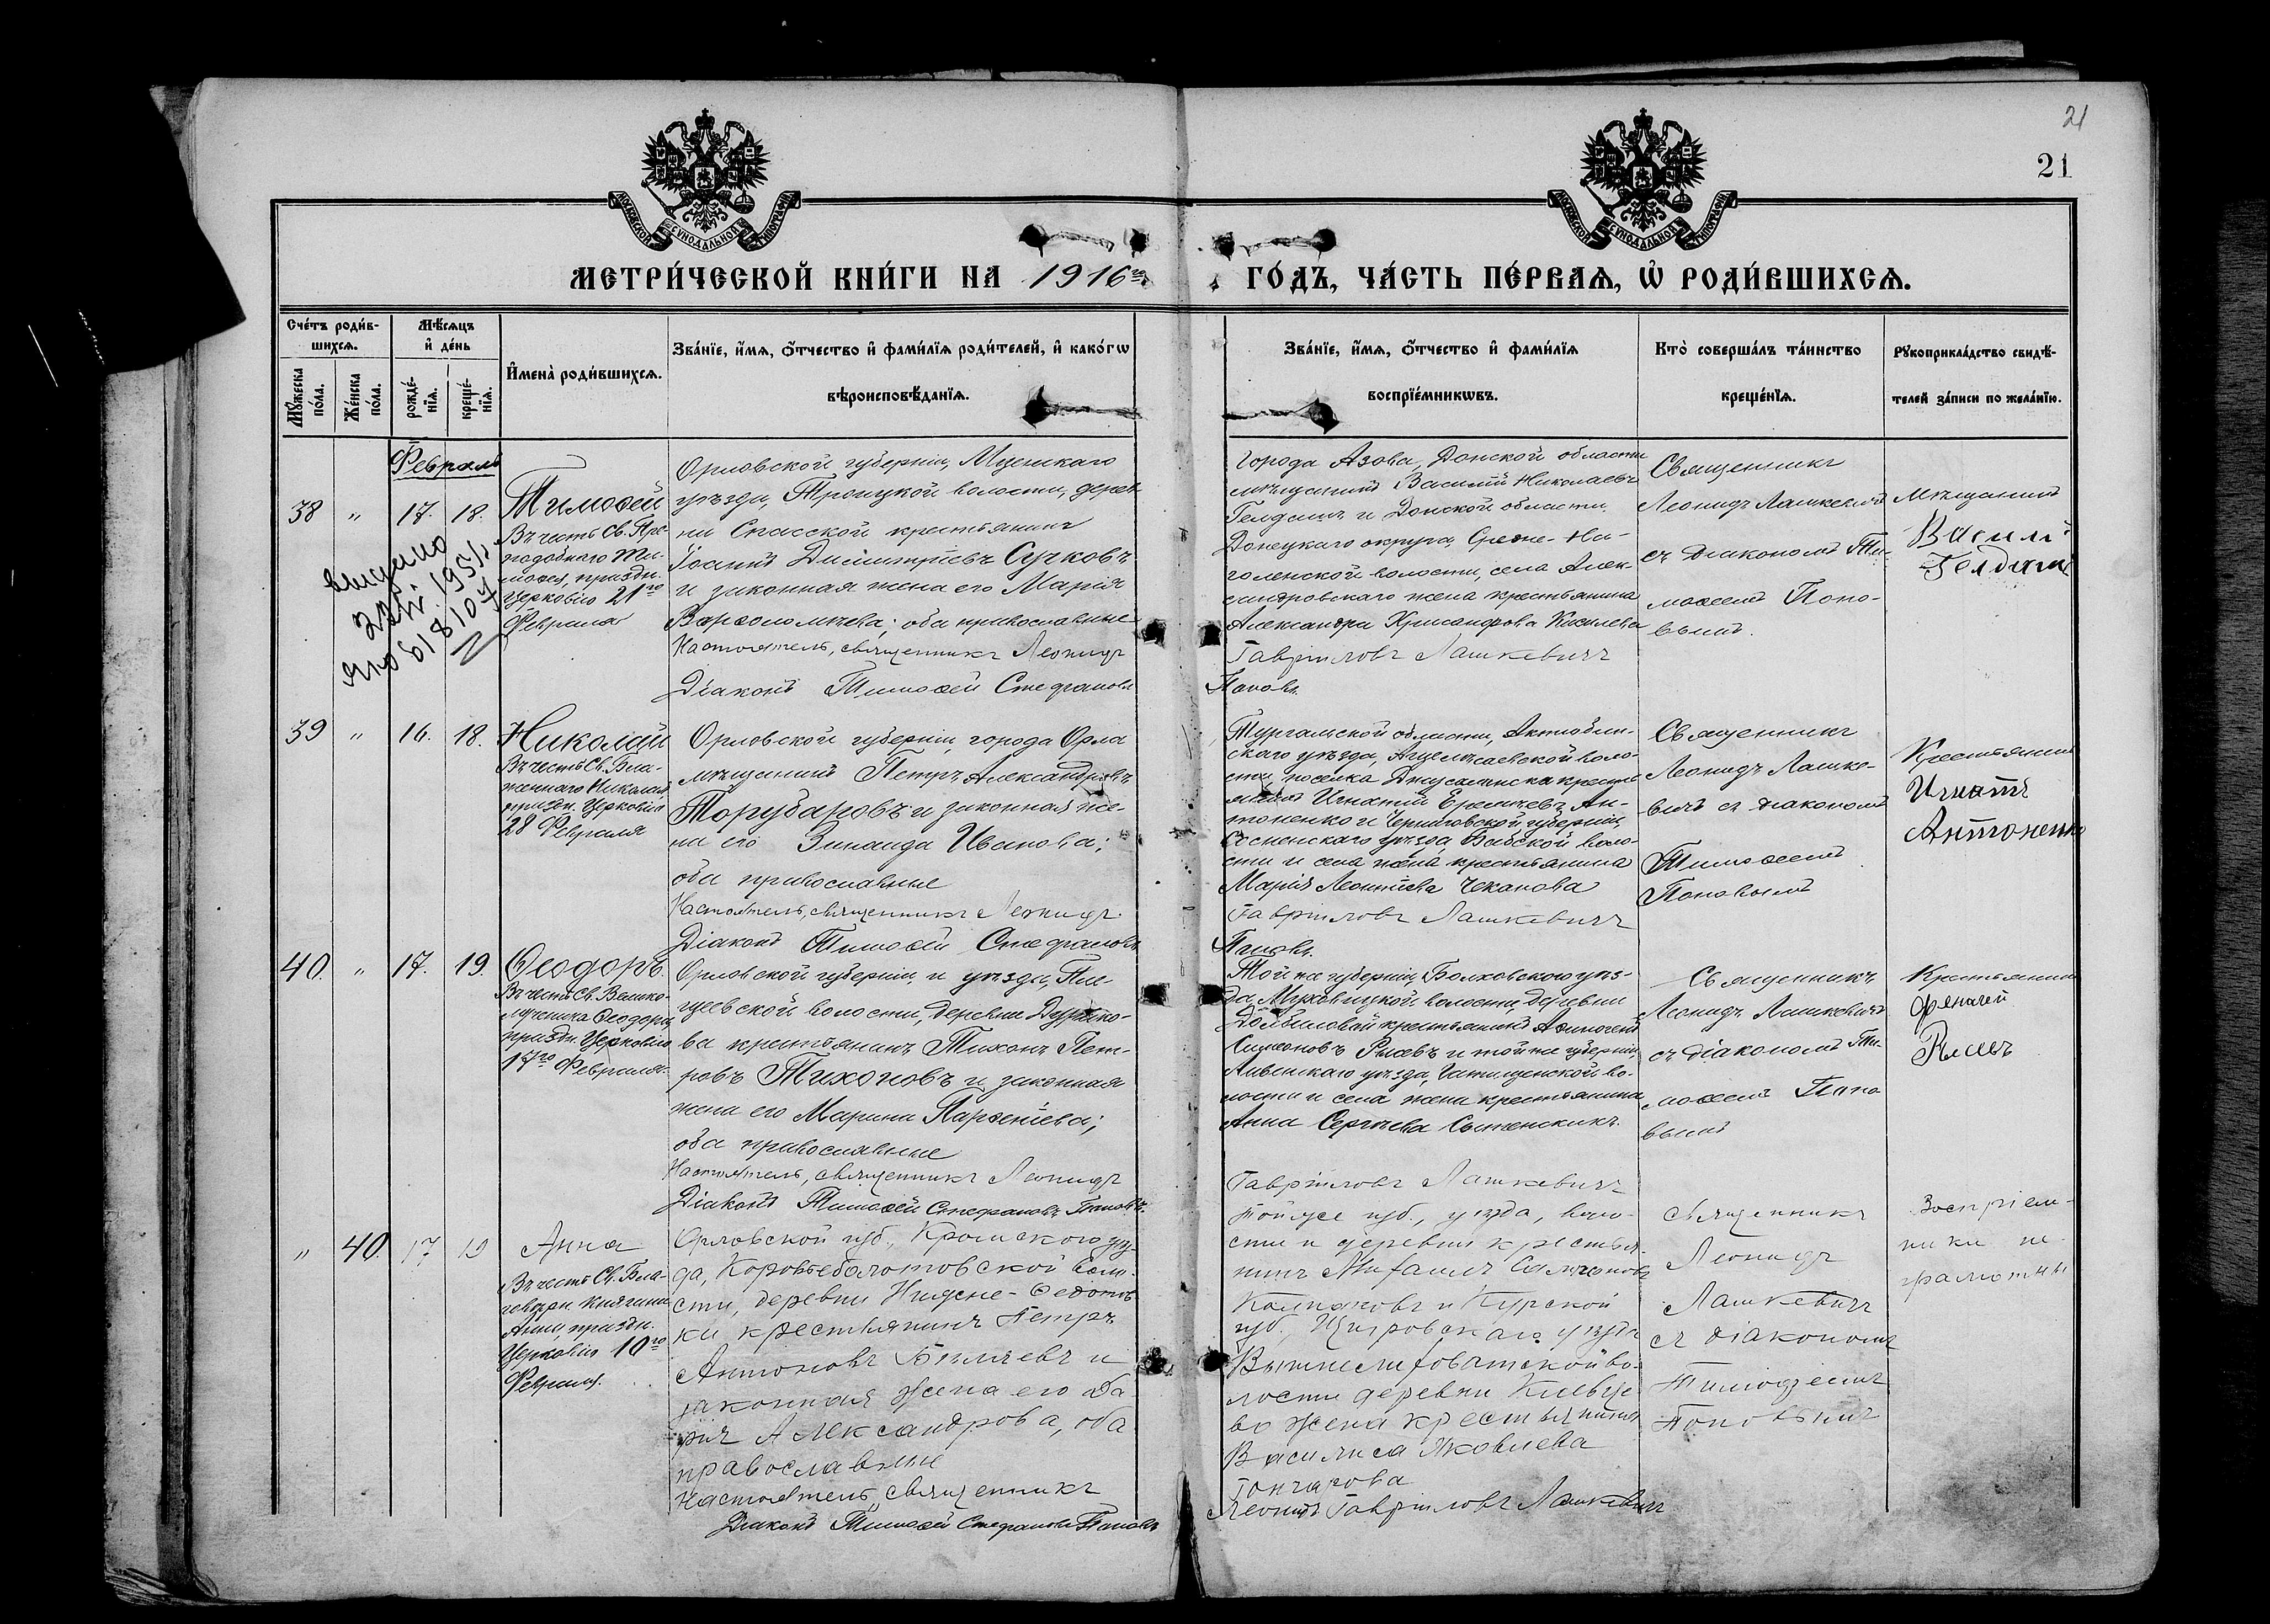 21
21
МОСКОВСКОЙ СѴНОДАЛЬНОЙ ТИПОГРАФІИ
МОСКОВСКОЙ СѴНОДАЛЬНОЙ ТИПОГРАФІИ
МЕТРИ́ЧЕСКОЙ КНИ́ГИ НА 1916го ГО́ДЪ, ЧА́СТЬ ПЕ́РВАѦ, Ѡ҆ РОДИ́ВШИХСѦ.
Сче́тъ роди́в-
шихсѧ.
Мꙋ́жеска по́ла.
Же́нска по́ла.
Мѣ́сѧцъ
и҆ де́нь
рожде́-
нїѧ.
креще́-
нїѧ.
И҆мена̀ роди́вшихсѧ.
Зва́нїе, и҆́мѧ, ѻ҆́тчество и҆ фами́лїѧ роди́телей, и҆ како́гѡ
вѣроисповѣ́данїѧ.
Зва́нїе, и҆́мѧ, ѻ҆́тчество и҆ фами́лїѧ
воспрїе́мникѡвъ.
Кто̀ соверша́лъ та́инство
креще́нїѧ.
Рꙋкоприкла́дство свидѣ́-
телей за́писи по жела́нїю.
Февраль
38 " 17. 18.
Тимоѳей
Въ честь Св. Пре-
подобнаго Ти-
моѳея, праздн.
Церковію 21го
Февраля
Орловской губерніи, Мценскаго
уѣзда, Троицкой волости, дерев-
ни Спасской крестьянинъ
Іоаннъ Димитріевъ Сучковъ
и законная жена его Марія
Варѳоломѣева; оба православные
Настоятель, священникъ Леонидъ
Діаконъ Тимоѳей Стефановъ
Города Азова, Донской области
мѣщанинъ Василій Николаевъ
Гелдашъ и Донской области,
Донецкаго округа, Средне-На-
голенской волости, села Алек-
сандровскаго жена крестьянина
Александра Хрисанфова Киселева
Гавріиловъ Лашкевичъ
Поповъ.
Священникъ
Леонидъ Лашкевичъ
съ діакономъ Ти-
моѳеемъ Попо-
вымъ.
Мѣщанинъ
Василій
Гелдашъ
39 " 16. 18.
Николай
Въ честь Св. Бла-
женнаго Николая
праздн. Церковію
28 Февраля
Орловской губерніи города Орла
мѣщанинъ Петръ Александровъ
Торубаровъ и законная же-
на его Зинаида Иванова;
оба православные
Настоятель, священникъ Леонидъ
Діаконъ Тимоѳей Стефановъ
Тургайской области, Актюбин-
скаго уѣзда,
Игнатій Ан-
тоненко и Черниговской губерніи,
Сосницкаго уѣзда, Бабской воло-
сти и села жена крестьянина
Марія Леонтіева Чеканова
Гавріиловъ Лашкевичъ
Поповъ.
Священникъ
Леонидъ Лашке-
вичъ съ діакономъ
Тимоѳеемъ
Поповымъ
Крестьянинъ
Игнатій
Антоненко
40. " 17. 19.
Ѳеодоръ
Въ честь Св. Велико-
мученика Ѳеодора,
праздн. Церковію
17го Февраля.
Орловской губерніи и уѣзда, Пи-
щевской волости, деревни
крестьянинъ Тихонъ Пет-
ровъ Тихоновъ и законная
жена его Марина Парѳеніева;
оба православные
Настоятель, священникъ Леонидъ
Діаконъ Тимоѳей Стефановъ Поповъ.
Той же губерніи, Болховского уѣз-
да, волости, деревни
крестьянинъ
Симеоновъ и той же губерніи,
Ливенскаго уѣзда, во-
лости и села жена крестьянина
Анна Сергѣева
Гавріиловъ Лашкевичъ
Священникъ
Леонидъ Лашкевичъ
съ діакономъ Ти-
моѳеемъ Попо-
вымъ
Крестьянинъ
" 40. 17 19
Анна
Въ честь Св. Бла-
говѣрн. Княгини
Анны, праздн.
Церковію 10го
Февраля.
Орловской губ., Кромскаго уѣз-
да, Коровьеболотовской воло-
сти, деревни Нижне-Ѳедотов-
ки крестьянинъ Петръ
Антоновъ и
законная жена его Да-
рія Александрова, оба
православные
Настоятель, священникъ
Діаконъ Тимоѳей Стефановъ Поповъ
Той же губ., уѣзда, воло-
сти и деревни крестья-
нинъ Михаилъ
и Курской
губ., Щигровскаго уѣзда
во-
лости деревни
жена крестьянина
Василиса Яковлева
Гончарова
Леонидъ Гавріиловъ Лашкевичъ
священникъ
Леонидъ
Лашкевичъ
съ діакономъ
Тимоѳеемъ
Поповымъ
Воспріем-
ники не-
грамотны